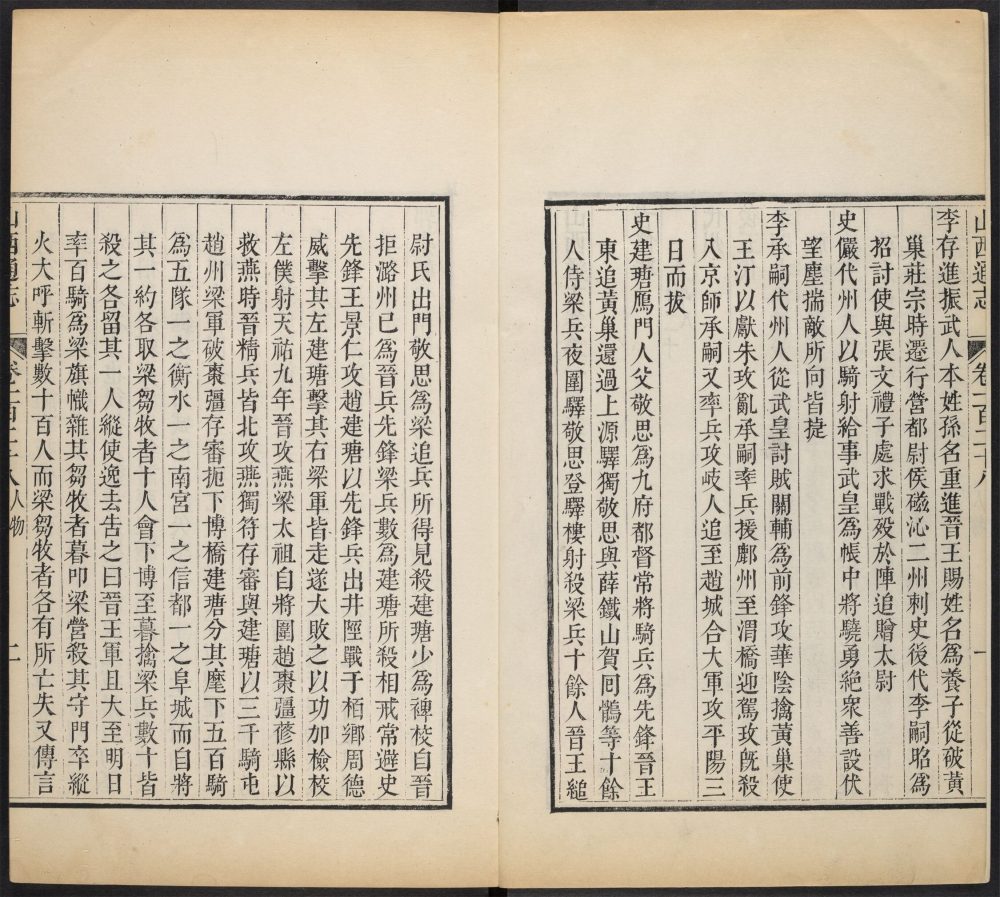 山西通志　卷一百二十八　一
李存進振武人本姓孫名重進晉王賜姓名為養子從破黃
巢莊宗時遷行營都尉侯磁沁二州刺史後代李嗣昭為
招討使與張文禮子處求戰歿於陣追贈太尉
史儼代州人以騎射給事武皇為帳中將驍勇絕衆善設伏
望塵揣敵所向皆捷
李承嗣代州人從武皇討賊關輔為前鋒攻華陰擒黃巢使
王汀以獻朱玫亂承嗣率兵援鄜州至渭橋迎駕玫旣殺
入京師承嗣又率兵攻岐人追至趙城合大軍攻平陽三
日而拔
史建瑭鴈門人父敬思為九府都督常將騎兵為先鋒晉王
東追黃巢還過上源驛獨敬思與薛鐵山賀回鶻等十餘
人侍梁兵夜圍驛敬思登驛樓射殺梁兵十餘人晉王縋
尉氏出門敬思為梁追兵所得見殺建瑭少為裨校自晉
拒潞州已為晉兵先鋒梁兵數為建瑭所殺相戒常避史
先鋒王景仁攻趙建瑭以先鋒兵出井陘戰于栢鄉周德
威擊其左建瑭擊其右梁軍皆走遂大敗之以功加檢校
左僕射天祐九年晉攻燕梁太祖自將圍趙棗彊蓚縣以
救燕時晉精兵皆北攻燕獨符存審與建瑭以三千騎屯
趙州梁軍破棗彊存審扼下博橋建瑭分其麾下五百騎
為五隊一之衡水一之南宮一之信都一之阜城而自將
其一約各取梁芻牧者十人會下博至暮擒梁兵數十皆
殺之各留其一人縱使逸去告之曰晉王軍且大至明日
率百騎為梁旗幟雜其芻牧者暮叩梁營殺其守門卒縱
火大呼斬擊數十百人而梁芻牧者各有所亡失又傳言
山西通志　卷一百二十八人物　二